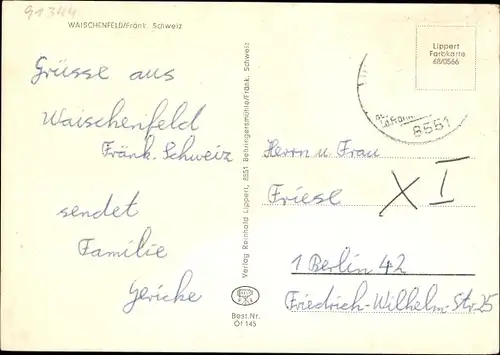 91344
WAISCHENFELD/Fränk. Schweiz
Grüsse aus
Waischenfeld
Fränk. Schweiz
sendet
Familie
Gericke
Verlag Reinhold Lippert, 8551 Behringersmühle/Fränk. Schweiz
Best.Nr.
Of 145
Lippert
Farbkarte
68/0566
8551
Herrn u Frau
Friese
XI
1 Berlin 42
Friedrich-Wilhelm-Str 25